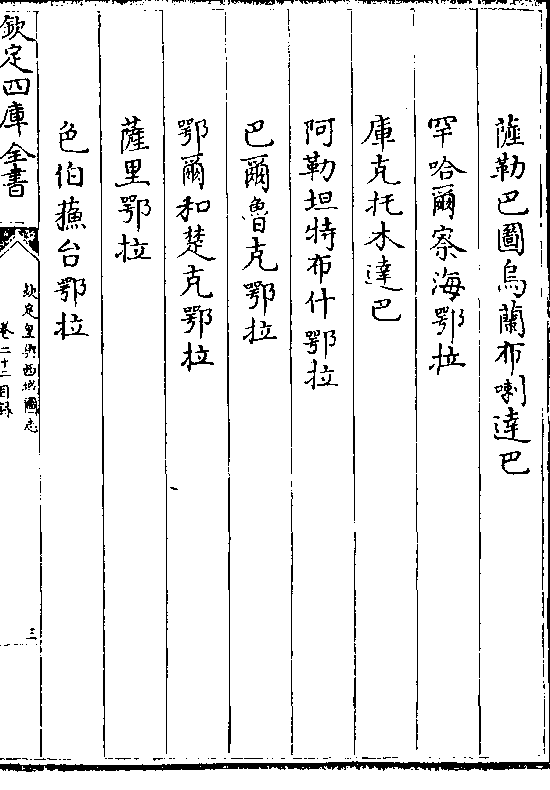 薩勒巴圖烏蘭布喇達巴
罕哈爾察海鄂拉
庫克托木達巴
阿勒坦特布什鄂拉
巴爾魯克鄂拉
鄂爾和楚克鄂拉
薩里鄂拉
色伯蘓台鄂拉
欽定四庫全書
欽定皇輿西域圖志
卷二十二目録
三